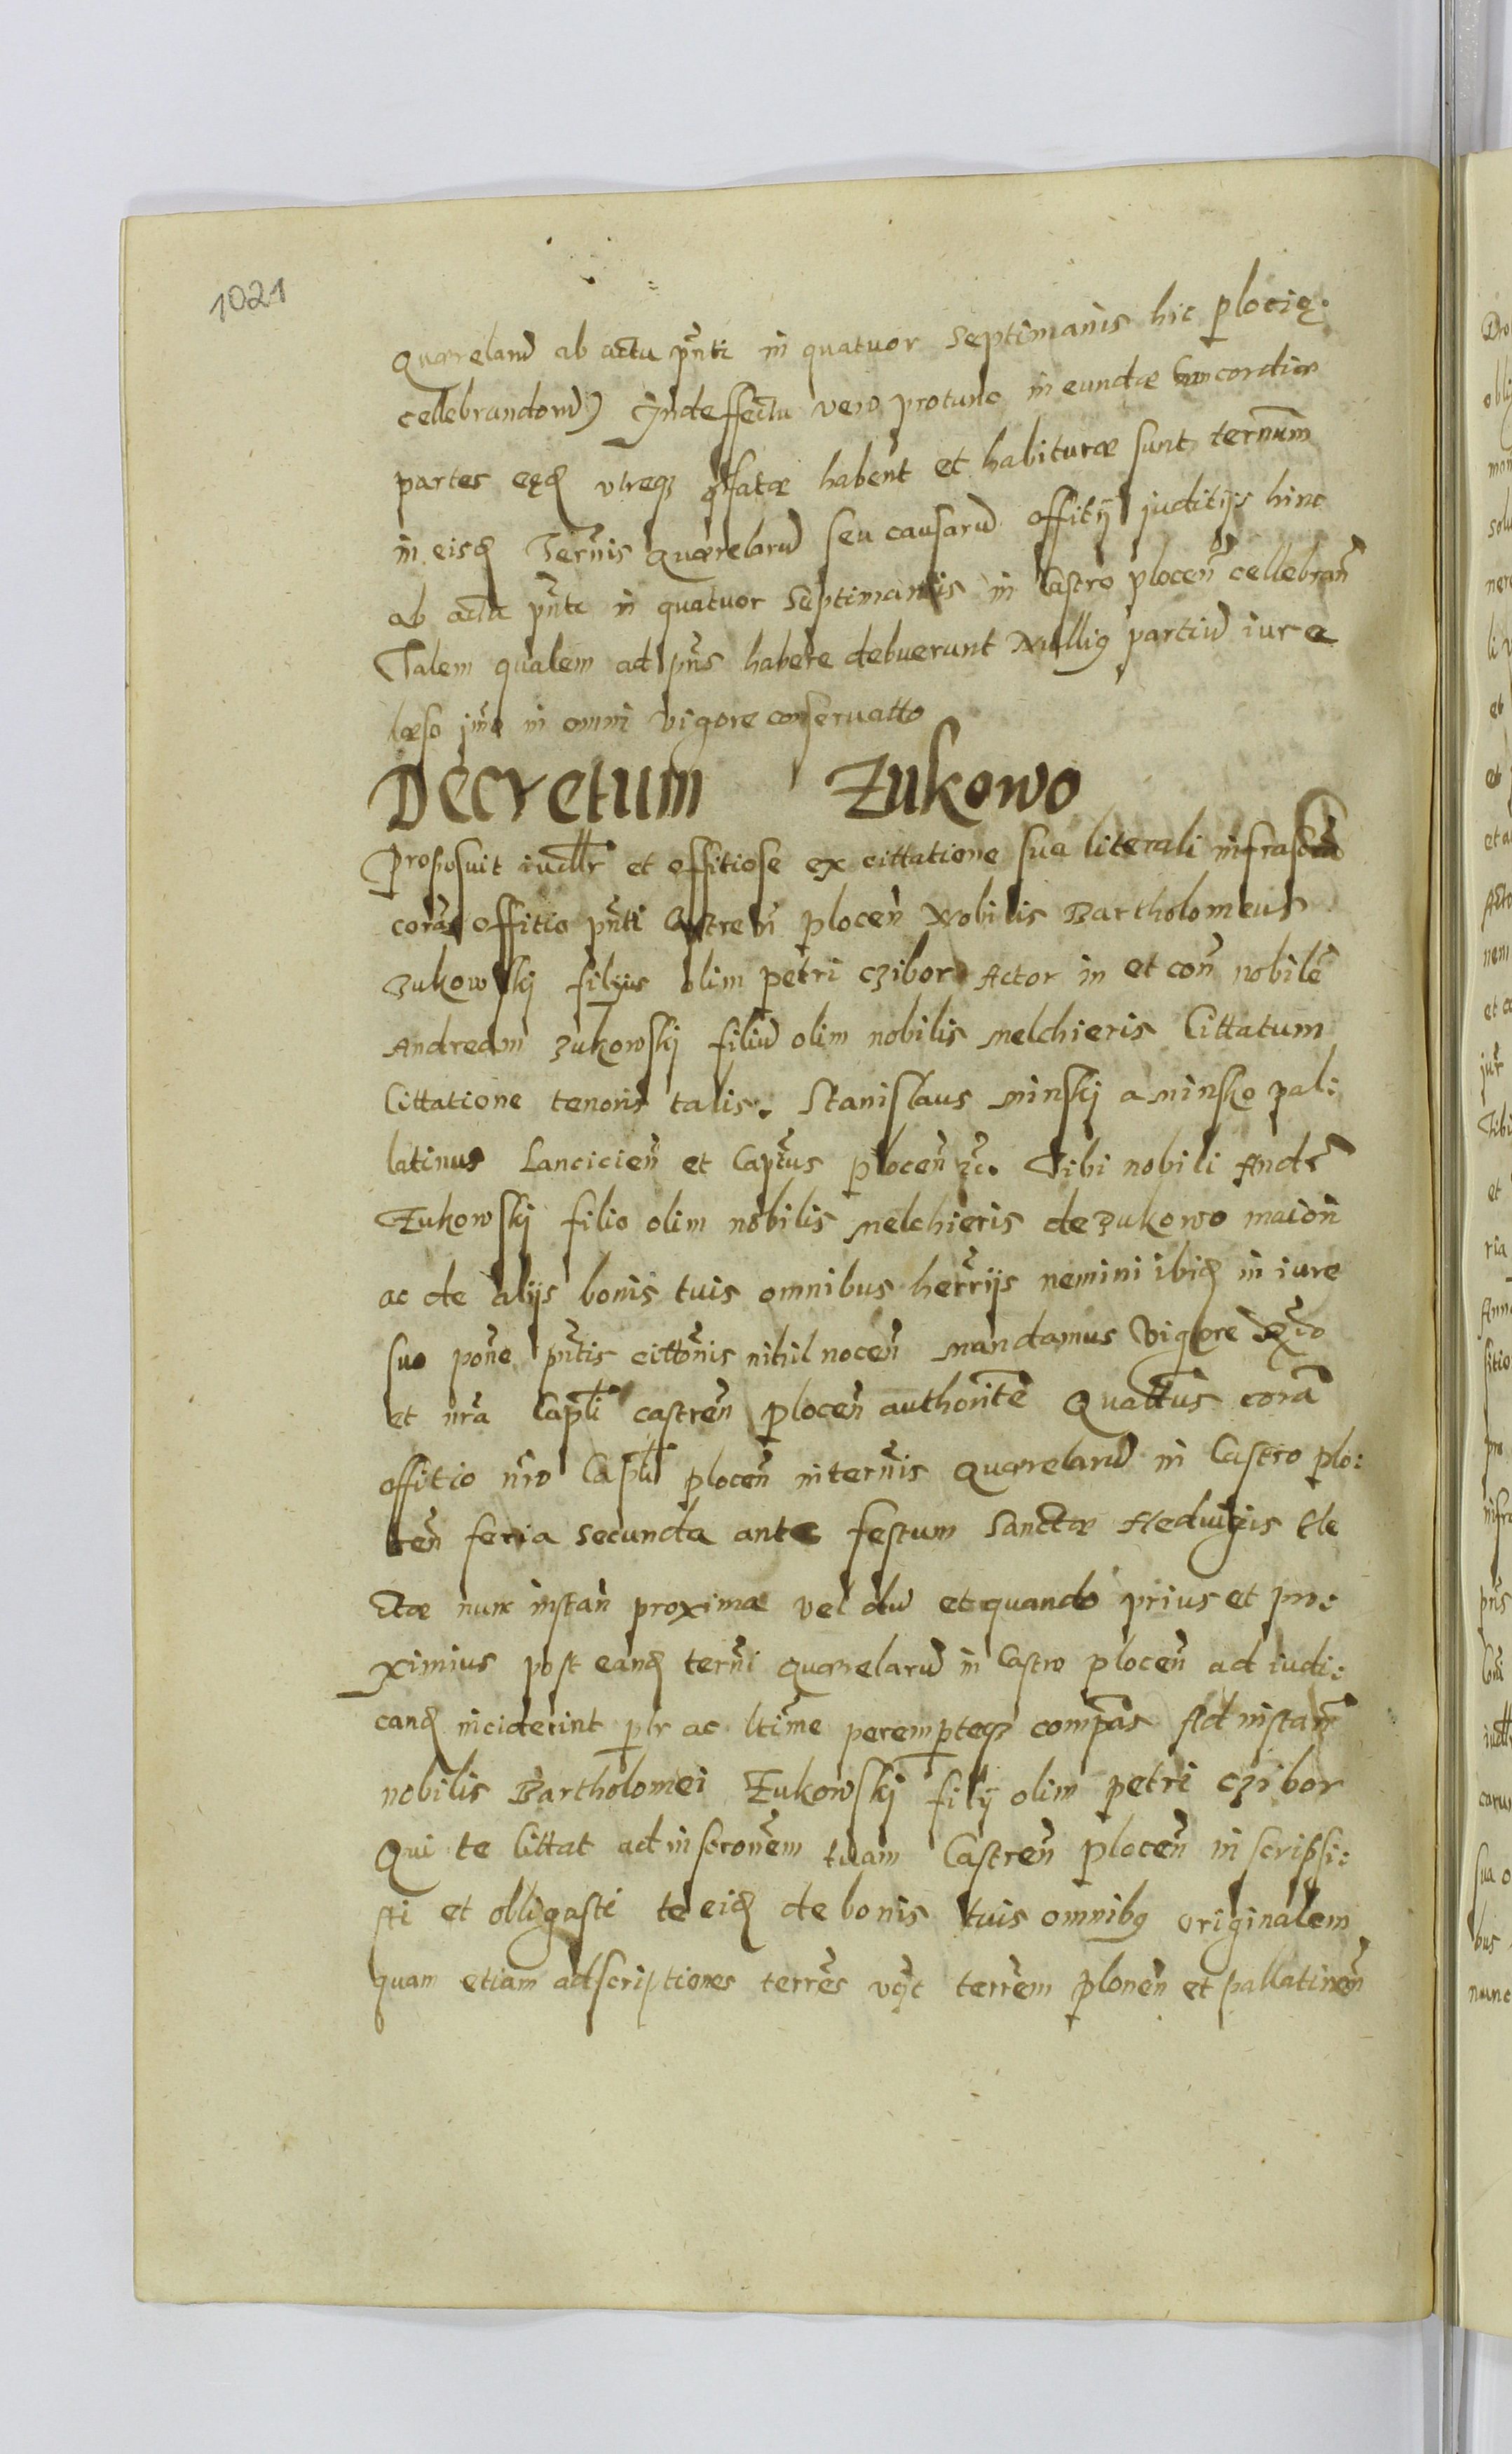 1021
Quærelarū ab actu pn̄ti in quatuor Septimanis hic plociæ
cellebrandorū) Indeffectu vero protunc ineundæ Concordiæ
partes eæd utreqꝫ pfatæ habent et habituræ sunt termūm
in eisd Termīs Quærelarū seu causarū offitij juditijs hinc
ab actu pn̄ti in quatuor Septimanis in Castro plocen̄ cellebran̄
Talem qualem ad pn̄s habere debuerunt Nulliꝯ partiū iure
læso imo in omni vigore conseruatto
Decretum Zukowo
Proposuit iudllr et offitiose ex cittatione sua literali infrascta
corā offitio pn̄ti Castren̄ plocen̄ Nobilis Bartholomeus
Zukowskj filius olim petri czibor Actor in et con̄ nobilē
Andream Zukowskj filiū olim nobilis Melchieris Cittatum
Cittatione tenoris talis. Stanislaus Minskj a Minsko pal:
latinus Lancicien̄ et Captēus plocen̄ zc. Tibi nobili Andr̄
Zukowskj filio olim nobilis Melchieris de Zukowo maion̄
ac de alijs bonis tuis omnibus herrijs nemini ibid in iure
suo pōne pn̄tis cittōnis nihil nocen̄ Mandamus Vigore
et nrā Captli castren̄ plocen̄ authoritē Quattūs corā
offitio nr̄o Captli plocen̄ in termīs Quærelarū in Castro plo:
cen̄ feria Secunda ante festum Sanctæ Hedvigis Ele
ctæ nunc instan̄ proximæ vel dū et quando prius et pro:
ximius post eand termī quærelarū in Castro plocen̄ ad iudi:
cand inciderint plr ac ltīme perempteqꝫ compās Ad instam̄
nobilis Bartholomei Zukowskj filij olim petri czibor
Qui te Cittat ad inscronēm tuam Castren̄ plocen̄ inscripsi:
sti et obligasti te eid de bonis tuis omnibꝯ originalem
quam etiam adscriptiones terrēs terrēm plonen̄ et pallatinen̄